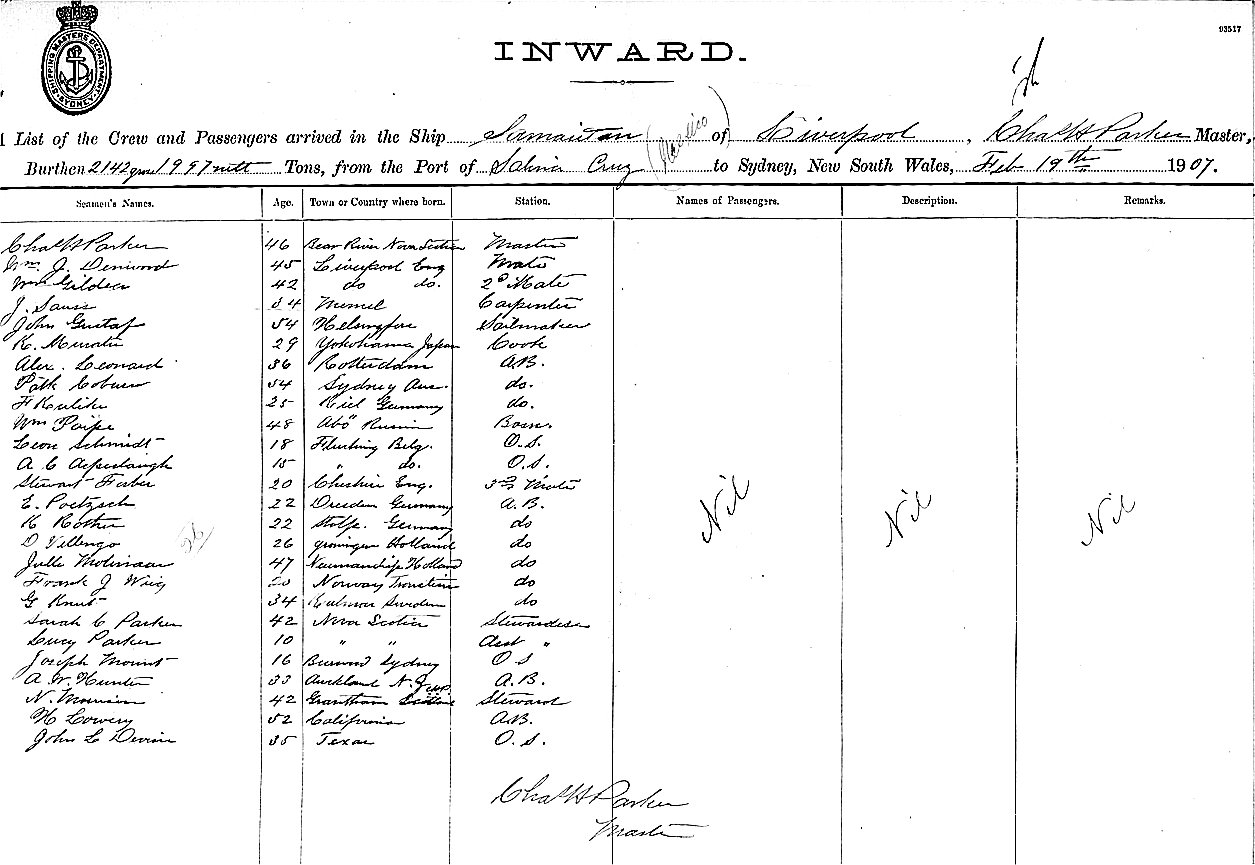 SHIPPING MASTERS DEPARTMENT SYDNEY
93517
INWARD.
List of the Crew and Passengers arrived in the Ship Samaritan (Mexico) of Liverpool, Chas H Parker Master,
Burthen 2142 gross 1997 nett Tons, from the Port of Salina Cruz to Sydney, New South Wales, Feb 19th 1907.
Seamen's Names. Age. Town or Country where born. Station. Names of Passengers. Description. Remarks.
Chas H Parker 46 Bear River Nova Scotia Master
Wm. J. Denwood 45 Liverpool Eng Mate
Wm Gilder 42 do do. 2d Mate
J. 34 Memel Carpenter
John Gustaf 54 Helsingfors Sailmaker
K. Murata 29 Yokohama Japan Cook
Alex. Leonard 36 Rotterdam A.B.
Patk Coburn 34 Sydney Aus. do.
F 25 Kiel Germany do.
Wm 48 Abö Russia Bosn.
Leon Schmidt 18 Flushing Belg. O.S.
A C 15 " do. O.S.
Stewart Ferber 20 Cheshire Eng. 3rd Mate
E. Poetzsch 22 Dresden Germany A.B.
K Rother 22 Stolp. Germany do
26
D Villenga 26 Groningen Holland do
Julle Molinaar 47 Holland do
Frank J Wiig 20 Norway do
G Knut 34 Kalmar Sweden do
Sarah C Parker 42 Nova Scotia Stewardess
Lucy Parker 10 " " Asst "
Joseph Mount 16 Burwood Sydney O S
A. W. Hunter 33 Auckland N.Z. A.B.
N. Morrison 42 Grantham Steward
H Lowery 52 California A.B.
John L Devine 35 Texas O.S.
Nil Nil Nil
Chas H Parker
Master